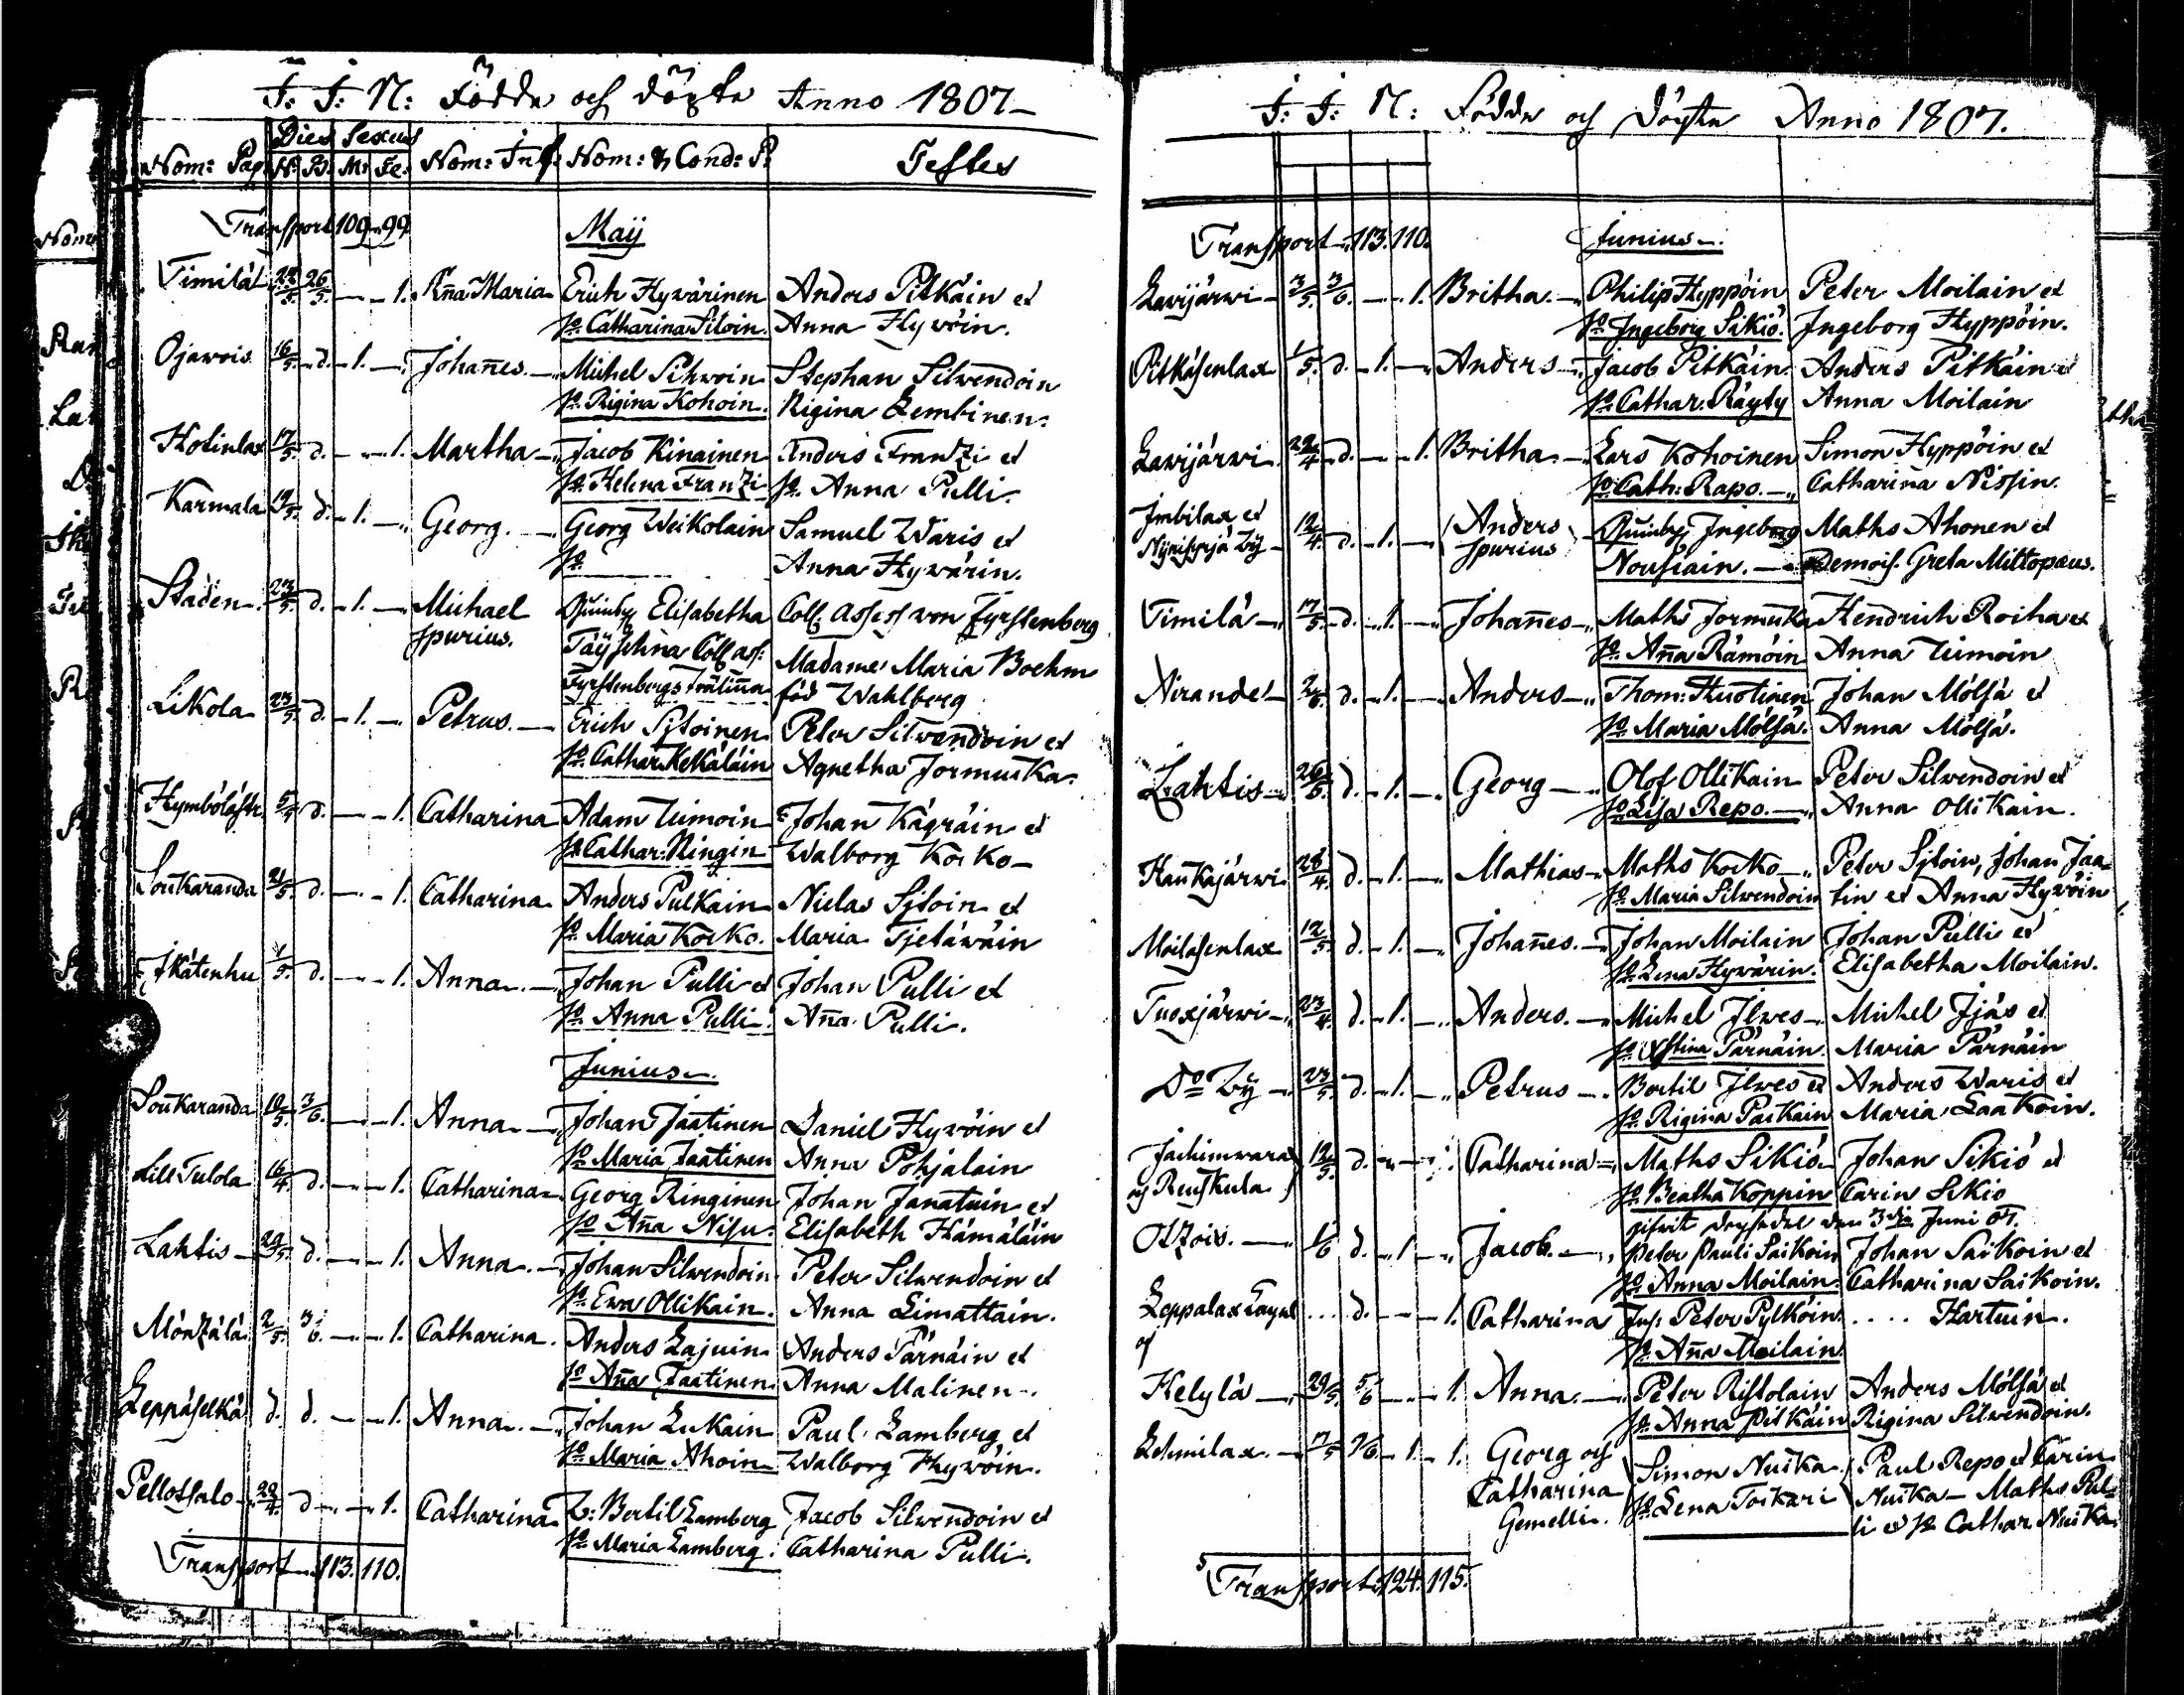 I: I: N: Födde och döpte Anno 1807
Dies Sexus
Nom: Pag. N. B. M: Fe. Nom: Inf. Nom: & Cond: P. Testes
Transport 109 99 Maij
Timilä 26/5. 1. Anna Maria Erich Hyvärinen Anders Pitkäin et
Catharina Siloin. Anna Hyvöin.
Ojawois 16/5. d. 1. Johannes. Michel Sihvoin Stephan Silvendoin
Regina Kohoin. Rigina Lembinen.
Hotinlax 17/5. d. 1. Martha Jacob Kinainen Anders Frantzi et
Helena Frantzi Anna Pulli.
Karmala 19/5. d. 1. Georg. Georg Weikolain Samuel Wäris et
Anna Hyvärin.
Staden 23/5. d. 1. Michael Elisabetha Coll: Assess von Fyrstenberg
spurius. Coll ass: Madame Maria Boehm
Fyrstenbergs föd Wahlberg
Likola 23/5. d. 1. Petrus. Erich Sytoinen Peter Silvendoin et
Cathar. Kekäläin Agnetha Jormuka.
Hymböläsh. 5/5 d. 1. Catharina Adam Teimoin Johan Kägräin et
Cathar: Ringin Walborg Korko
Soukaranda 21/5 d. 1. Catharina Anders Pulkain Niclas Sytoin et
Maria Korko. Maria Tjetäwäin
d. 1. Anna. Johan Pulli et Johan Pulli et
Anna Pulli. Aña Pulli.
Junius
Soukaranda 10/5. 3/6. 1. Anna Johan Jaatinen Daniel Hyvöin et
Maria Jaatinen Anna Pohjalain
Lill Tulola 16/4. d. 1. Catharina Georg Ringinen Johan Janatuin et
Aña Nisu. Elisabeth Hämäläin
Lahtis 29/5. d. 1. Anna Johan Silvendoin Peter Silvendoin et
Ewa Ollikain. Anna Limattain.
Mönzälä 2/5. 3/6. 1. Catharina. Anders Lajuin Anders Pärnäin et
Aña Jaatinen. Anna Malinen
Leppäselkä d. d. 1. Anna Johan Lukain Paul Lamberg et
Maria Ahoin Walborg Hyvöin.
Pellotsalo 29/4. d 1. Catharina Bertil Lamberg Jacob Silvendoin et
Maria Lamberg. Catharina Pulli.
Transport 113. 110.
I: I: N: Födde och Döpte Anno 1807.
Transport 113. 110. Junius
Lavijärvi 3/5. 3/6. 1. Britha. Philip Hyppöin Peter Moilain et
Ingeborg Sikiö. Ingeborg Hyppöin.
Pitkäsenlax 1/5. d. 1. Anders Jacob Pitkäin Anders Pitkäin et
Cathar. Räyty Anna Moilain
Lavijärvi 22/4. d. 1. Britha. Lars Kohoinen Simon Hyppöin et
Cath: Rapo. Catharina Nissin.
Imbilax et 12/4. d. 1. Anders Ingeborg Maths Ahonen et
spurius Nousiain. Demois. Greta Mittopæus.
Timilä 17/5. d. 1. Johañes Maths Jormuka Hendrich Roiha et
Aña Rämöin Anna Teimoin
Nirande 2/6. d. 1. Anders Thom: Huotinen Johan Mölsä et
Maria Mölsä. Anna Mölsä.
Lahtis 26/5. d. 1. Georg Olof Ollikain Peter Silvendoin et
Lisa Repo. Anna Ollikain.
Haukajärvi 28/4. d. 1. Mathias Maths Korko Peter Sytoin, Johan Jaa
Maria Silvendoin tin et Anna Hyvöin
Moilasenlax 12/5 d. 1. Johañes. Johan Moilain Johan Pulli et
Lena Hyvärin. Elisabetha Moilain.
Tuoxjärvi 23/4. d. 1. Anders. Michel Ilves Michel Ijäs et
Xstina Pärnäin. Maria Pärnäin
Do By 23/5. d. 1. Petrus Bertil Ilves et Anders Waris et
Rigina Paikain Maria Laakoin.
Jackimvara 12/5. d. Catharina Maths Sikiö Johan Sikiö et
och Reuskula Beatha Koppin Carin Sikiö
den 3dje Juni 07.
Otzois. 1/6 d. 1 Jacob. Peter Pauli Saikoin Johan Saikoin et
Anna Moilain. Catharina Saikoin.
Leppalax .... d. 1. Catharina Peter Pylköin .... Hartuin.
Aña Moilain
Helylä 29/5. 5/6 1. Anna. Peter Ristolain Anders Mölsä et
Anna Pitkäin Rigina Silvendoin.
1. 1. Georg och Simon Nuska Paul Repo et Carin
Catharina Lena Toikari Nuska Maths Pul
Gemelli. li et Cathar. Nuska
Transport 124. 115.